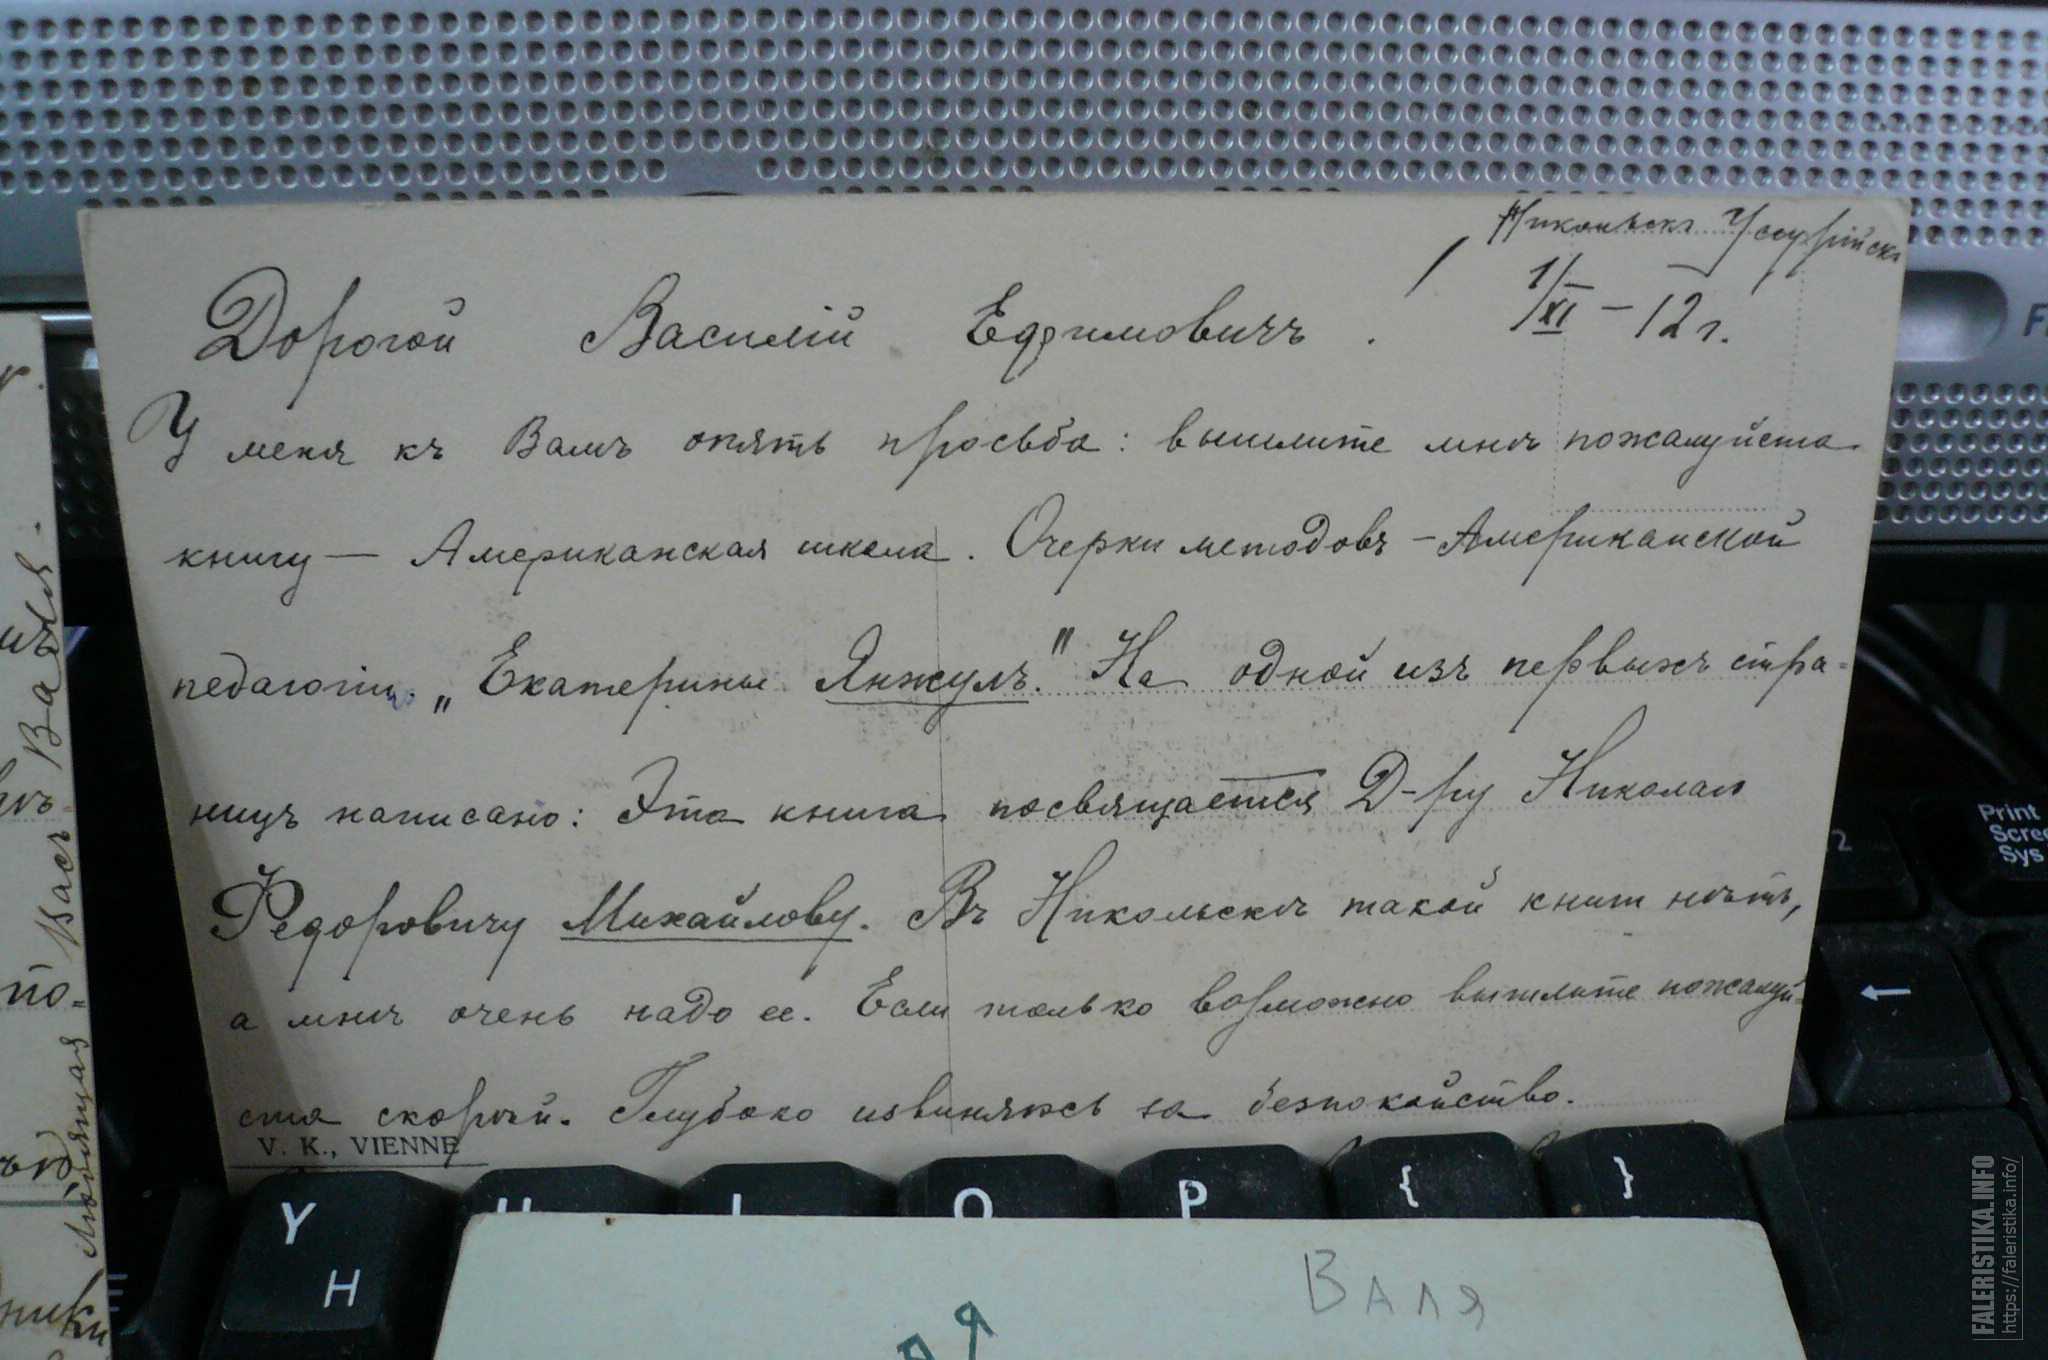 Никольскъ Уссурійскъ
1/XI – 12 г.
Дорогой Василій Ефимовичъ.
У меня къ Вамъ опять просьба: вышлите мнѣ пожалуйста
книгу — Американская школа. Очерки методовъ – Американской
педагогіи. „Екатерины Янжулъ." На одной изъ первыхъ стра-
ницъ написано: Эта книга посвящается Д-ру Николаю
Федоровичу Михайлову. Въ Никольскѣ такой книги нѣтъ,
а мнѣ очень надо ее. Если только возможно вышлите пожалуй-
ста скорѣй. Глубоко извиняюсь за безпокойство.
V. K., VIENNE
Валя
Васъ
по-
Любящая
Print
Scree
Sys
Y
H
I
O
P
{
}
Валя
FALERISTIKA.INFO
https://faleristika.info/